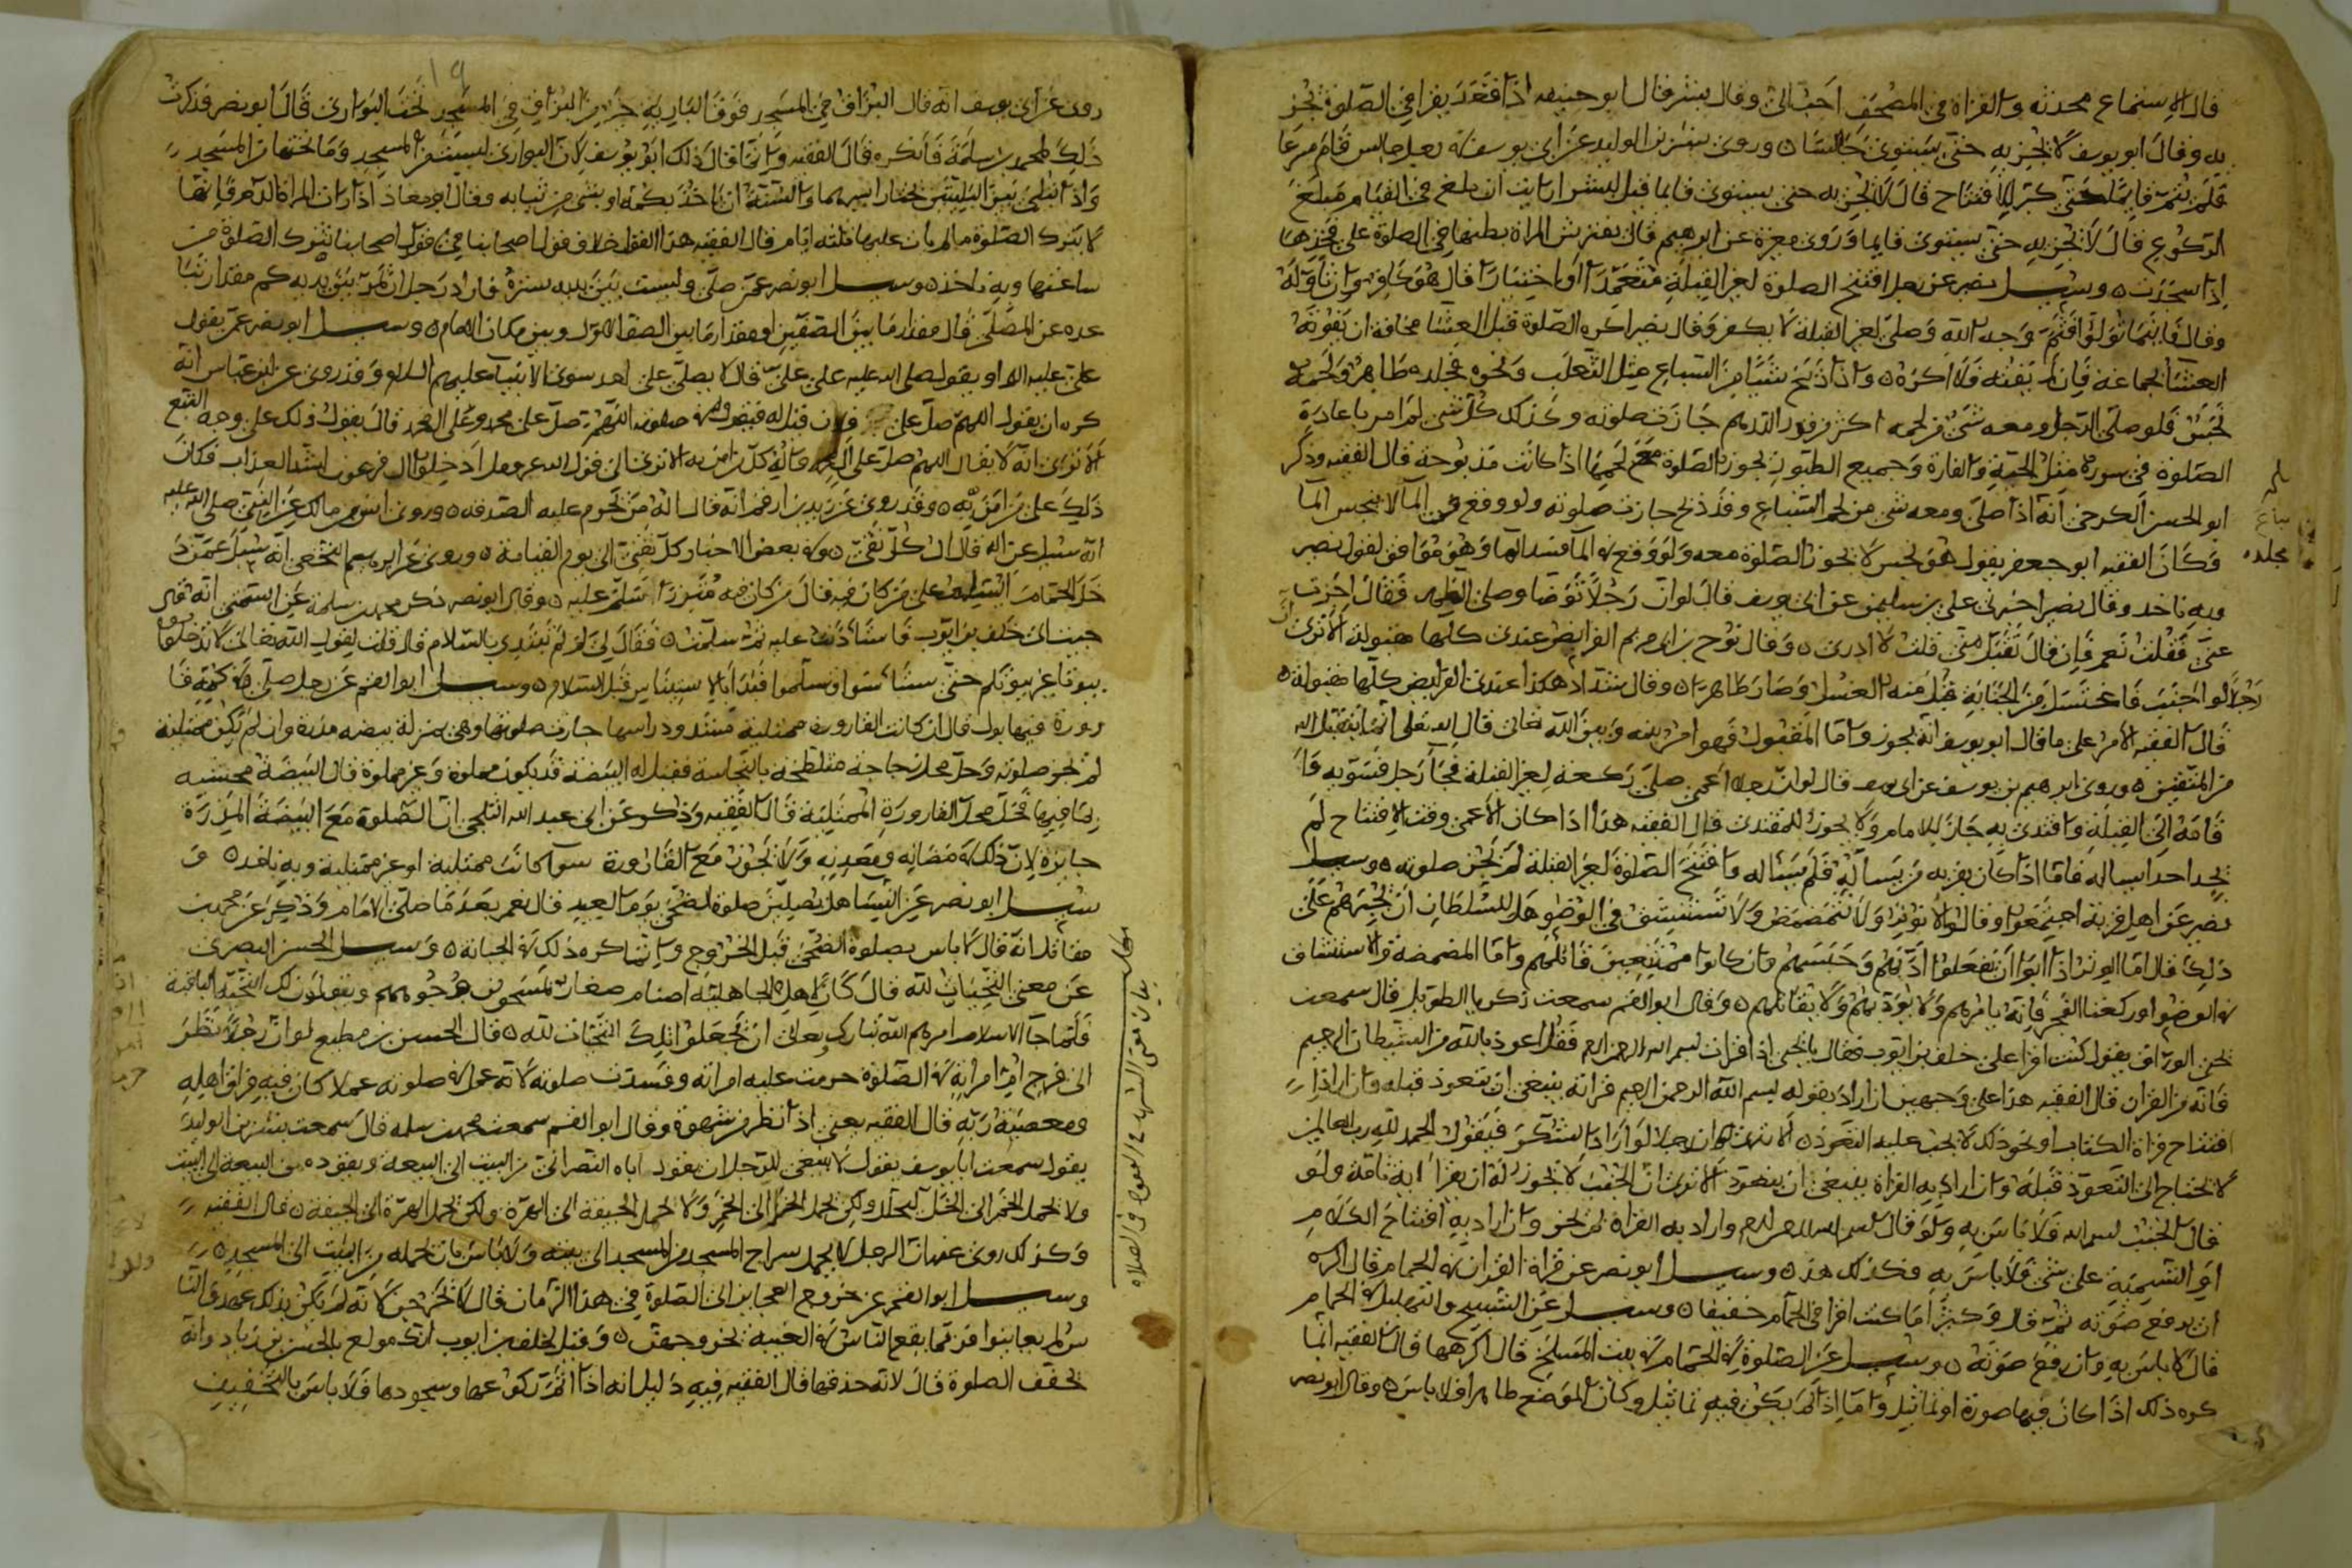 قال الاستماع محدثه والقراة في المصحف احب الي وقال بشر قال ابو حنيفه اذا قعد يقرا في الصلوة تجز
به وقال ابو يوسف لا تجزيه حتى يستوي جالسا وروى بشر بن الوليد عن ابي يوسف في رجل جالس قام مسرعا
فلم يتم قايما حتى كبر للافتتاح قال لا تجزيه حتى يستوي قايما قيل لبشر ارايت ان بلغ في القيام مبلغ
الركوع قال لا تجزيه حتى يستوي قايما وروى مغيرة عن ابرهيم قال تفترش المراة بطنها في الصلوة على فخذيها
اذا سجدت وسئل نصر عن رجل افتتح الصلوة لغير القبلة متعمدا او اختيارا قال هو كافر وان تاوله
وقال فاينما تولوا فثم وجه الله وصلى لغير القبلة لا يكفر وقال نصر اكره الصلوة قبل العشا مخافة ان يفوته
العشا الجماعة فان لم يفته فلا اكره واذا ذبح شيا من السباع مثل الثعلب ونحوه فجلده طاهر ولحمه
نجس فلو صلى الرجل ومعه شي من لحمه اكثر من قدر الدرهم جازت صلوته وكذلك كل شي لم امر باعادة
الصلوة في سورة مثل الحية والفارة وجميع الطيور تجوز الصلوة مع لحمها اذا كانت مذبوحة قال الفقيه وذكر
ابو الحسن الكرخي انه اذا صلى ومعه شي من لحم السباع وقد ذبح جازت صلوته ولو وقع في الما لا ينجس الما
وكان الفقيه ابو جعفر يقول هو نجس لا تجوز الصلوة معه ولو وقع في الما افسد الما وهو موافق لقول نصر
وبه ناخد وقال نصر اخبرني علي بن سليمن عن ابي يوسف قال لو ان رجلا توضا وصلى الظهر فقال اجزت
عني فقلت نعم فان قال تقبل مني قلت لا ادري وقال نوح بن ابي مريم الفرايض عندي كلها مقبولة الا ترى
رجلا لو اجنب فاغتسل من الجنابة قبل منه الغسل وصار طاهرا وقال شداد هكذا عندي الفرايض كلها مقبولة
قال الفقيه الامر على ما قال ابو يوسف انه يجوز واما المقبول فهو امر بينه وبين الله تعالى قال الله تعالى انما يتقبل الله
من المتقين وروى ابرهيم بن يوسف عن ابي يوسف قال لو ان رجلا اعمى صلى ركعة لغير القبلة فجا رجل فسوّيه فا
قامه الى القبلة واقتدى به جاز للامام ولا يجوز للمقتدي قال الفقيه هذا اذا كان الاعمى وقت الافتتاح لم
يجد احدا يساله فاما اذا كان بقربه من يساله فلم يساله وافتتح الصلوة لغير القبلة لم تجز صلوته وسئل
نصر عن اهل قرية اجتمعوا وقالوا لا نوتر ولا نتمضمض ولا نستنشق في الوضو هل للسلطان ان يجبرهم على
ذلك قال اما الوتر اذا ابوا ان يفعلوا ادبهم وحبسهم وان كانوا ممتنعين قاتلهم واما المضمضة والاستنشاق
في الوضو او ركعتا الفجر فانه يامرهم ولا يؤدبهم ولا يقاتلهم وقال ابو القسم سمعت زكريا الطويل قال سمعت
يحيى الوراق يقول كنت اقرا على خلف بن ايوب فقال يا يحيى اذا قرات بسم الله الرحمن الرحيم فقل اعوذ بالله من الشيطان الرجيم
فانه من القران قال الفقيه هذا على وجهين ان اراد بقوله بسم الله الرحمن الرحيم قراة ينبغي ان يتعوذ قبله وان اراد
افتتاح قراة الكتاب او نحو ذلك لا يجب عليه التعوذ الا ترى ان رجلا لو اراد الشكر فيقول الحمد لله رب العالمين
لا يحتاج الى التعوذ قبله وان اراد به القراة ينبغي ان يتعوذ الا ترى ان الجنب لا يجوز له ان يقرا اية تامة ولو
قال الجنب بسم الله فلا باس به ولو قال بسم الله الرحمن الرحيم واراد به القراة لم تجز وان اراد به افتتاح الكلام
او التسمية على شي فلا باس به فكذلك هذا وسئل ابو نصر عن قراة القران في الحمام قال اكره
ان يرفع صوته ثم قال وكثيرا ما كنت اقرا في الحمام خفيفا وسئل عن التسبيح والتهليل في الحمام
قال لا باس به وان رفع صوته وسئل عن الصلوة في الحمام في بيت المسلخ قال اكرهها قال الفقيه انما
كره ذلك اذا كان فيها صورة او تماثيل واما اذا لم يكن فيه تماثيل وكان الموضع طاهرا فلا باس وقال ابو نصر
مجلده
١٩
روى عن ابي يوسف انه قال البزاق في المسجد فوق البارية خير من البزاق في المسجد تحت البواري قال ابو نصر فذكرت
ذلك لمحمد بن سلمة فانكره قال الفقيه وانما قال ذلك ابو يوسف لان البواري ليست من المسجد وما تحتها من المسجد
واذا ابتلى بين البليتين يختار ايسرهما والسنة ان ياخذ بكمه او بشي من ثيابه وقال ابو معاذ اذا رات المراة الدم فانها
لا تترك الصلوة ما لم يات عليها ثلثة ايام قال الفقيه هذا القول خلاف قول اصحابنا في قول اصحابنا تترك الصلوة من
ساعتها وبه ناخذ وسئل ابو نصر عمن صلى وليست بين يديه سترة فاراد رجل ان يمر بين يديه كم مقدار تباعده
عن المصلي قال مقدار ما بين الصفين او مقدار ما بين الصف الاول وبين مكان الامام وسئل ابو نصر عمن يقول
علي عليه السلام او يقول صلى الله عليه على علي قال لا يصلى على احد سوى الانبيا عليهم السلام وقد روى عن ابن عباس انه
كره ان يقول اللهم صل على فلان قيل له فيقول في صلوته اللهم صل على محمد وعلى ال محمد قال يقول ذلك على وجه التبع
الا ترى انه لا يقال اللهم صل على اله وآله كل من امن به الا ترى الى قول الله عز وجل ادخلوا ال فرعون اشد العذاب فكان
ذلك على من امن به وقد روى عن زيد بن ارقم انه قال اله من تحرم عليه الصدقه وروى انس بن مالك عن النبي صلى الله عليه
انه سئل عن اله قال ال كل تقي وفي بعض الاخبار كل تقي الى يوم القيامة وروى عن ابرهيم النخعي انه سئل عمن د
خل الحمام ايسلم على من كان فيه قال من كان فيه متزرا سلم عليه وقال ابو نصر ذكر محمد بن سلمة عن السمتي انه قال
جيت الى خلف بن ايوب فاستاذنت عليه ثم سلمت فقال لي لو لم تبتدي بالسلام قال قلت لقول الله تعالى لا تدخلوا
بيوتا غير بيوتكم حتى تستانسوا وتسلموا فبدا بالاستيناس قبل السلام وسئل ابو القسم عن رجل صلى وفي كمه قا
رورة فيها بول قال ان كانت القارورة ممتلية مسدود راسها جازت صلوتها وهي بمنزلة بيضه مذرة وان لم تكن ممتلية
لم تجز صلوته وحل محل زجاجة متلطخة بالنجاسة فقيل له البيضة قد يكون مملوة وغير مملوة قال البيضة محتشيه
بما فيها فحل محل القارورة الممتلية قال الفقيه وذكر عن ابي عبد الله الثلجي ان الصلوة مع البيضة المذرة
جايزة لان ذلك في مضانه ومعدنه ولا تجوز مع القارورة سوا كانت ممتلية او غير ممتلية وبه ناخد و
سئل ابو نصر عن النسا هل يصلين صلوة الضحى يوم العيد قال نعم بعد ما صلى الامام وذكر عن محمد بن
مقاتل انه قال لا باس بصلوة الضحى قبل الخروج وانما كره ذلك في الجبانه وسئل الحسن البصري
عن معنى التحيات لله قال كان اهل الجاهلية اصنام صغار يمسحون وجوههم ويقولون لك التحية الباقية
فلما جا الاسلام امرهم الله تبارك وتعالى ان يجعلوا تلك التحيات لله قال الحسن بن مطيع لو ان رجلا نظر
الى فرج امراته في الصلوة حرمت عليه امراته وفسدت صلوته لانه عمل في صلوته عملا كان فيه فراق اهله
ومعصية ربه قال الفقيه يعني اذا نظر من شهوة وقال ابو القسم سمعت محمد بن سلمه قال سمعت بشر بن الوليد
يقول سمعت ابا يوسف يقول لا ينبغي للرجل ان يقود اباه النصراني من البيت الى البيعة ويقوده من البيعة الى البيت
ولا تحمل الخمر الى الخل للتحلل ولكن تحمل الخل الى الخمر ولا تحمل الجيفة الى الهرة ولكن تحمل الهرة الى الجيفة قال الفقيه
وكذلك روى عنه ان الرجل لا يحمل سراج المسجد من المسجد الى بيته ولا باس بان يحمله من البيت الى المسجد
وسئل ابو القسم عن خروج العجايز الى الصلوة في هذا الزمان قال لا تخرجن لانه لم يكن بذلك عهد والنا
س لم يعاينوا فربما يقع الناس في الغيبة بخروجهن وقيل لخلف بن ايوب انك مولع بالحسن بن زياد وانه
يخفف الصلوة قال لانه حذقها قال الفقيه فيه دليل انه اذا اتم ركوعها وسجودها فلا باس بالتخفيف